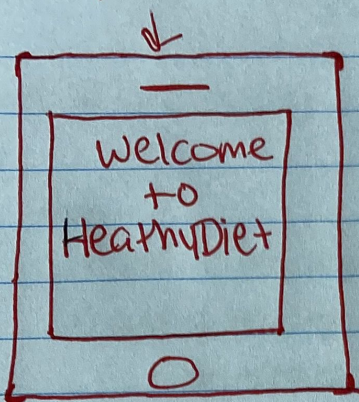 Welcome
to
HeathyDiet